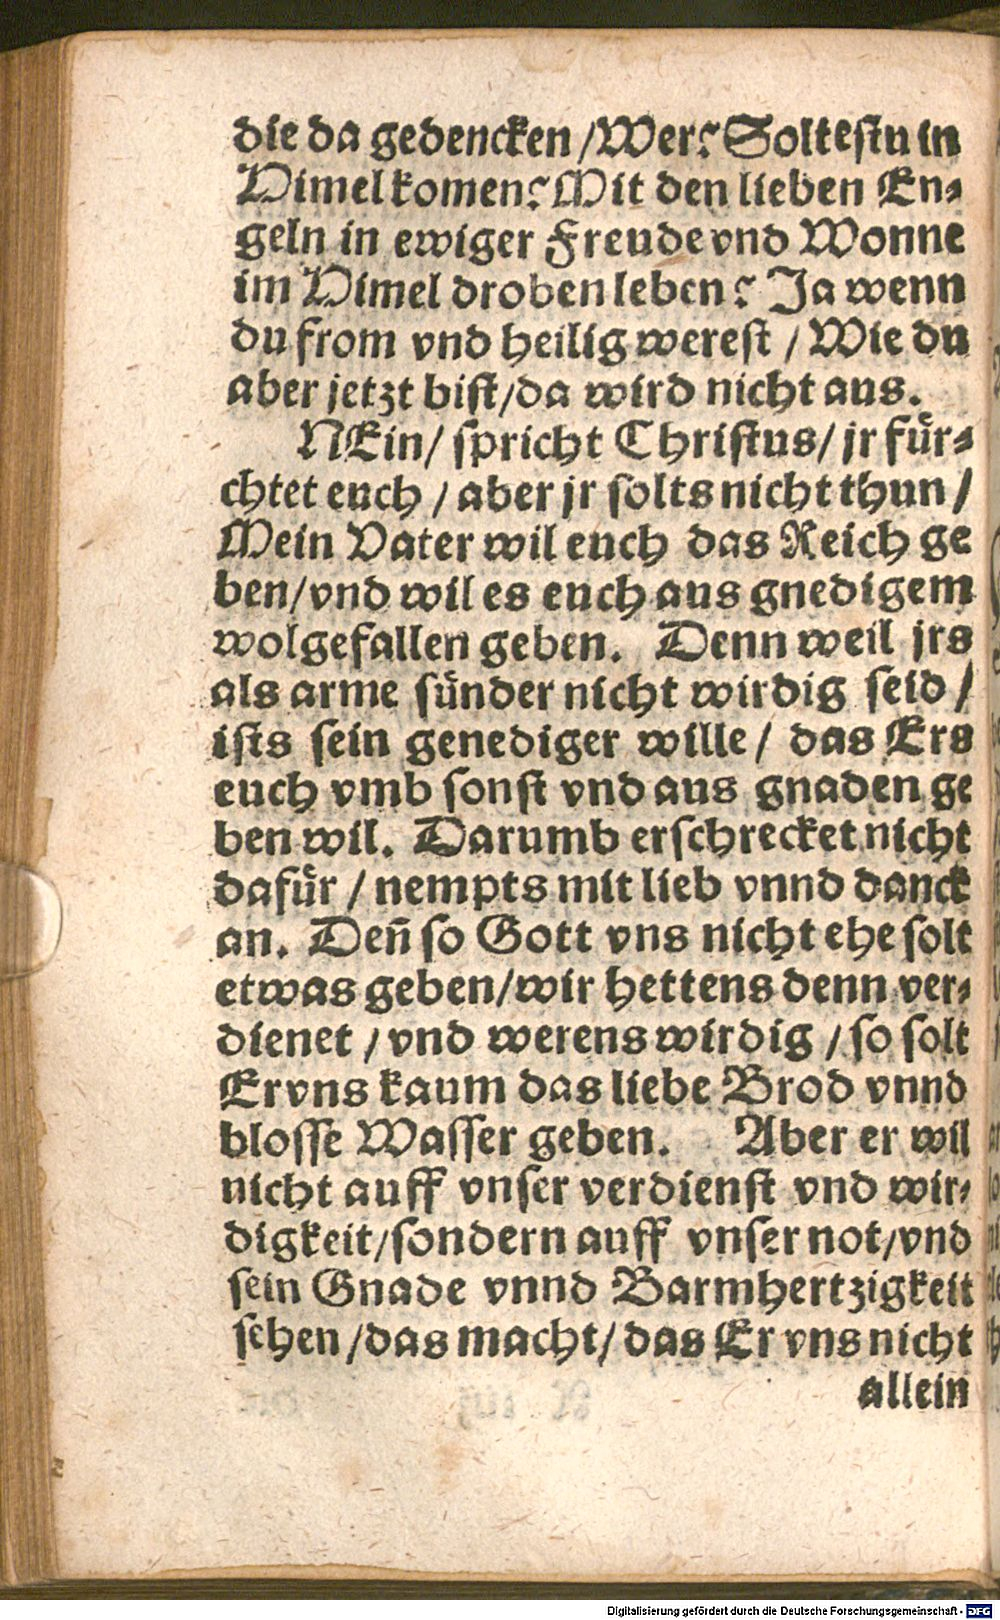 die da gedencken /Wer? Soltestu in
Himel komen? Mit den lieben En⸗
geln in ewiger Freude vnd Wonne
im Himel droben leben? Ja wenn
du from vnd heilig werest / Wie du
aber jetzt bist/da wird nicht aus.
NEin/ spricht Christus/ jr fuͤr⸗
chtet euch / aber jr solts nicht thun /
Mein Vater wil euch das Reich ge
ben/vnd wil es euch aus gnedigem
wolgefallen geben. Denn weil jrs
als arme suͤnder nicht wirdig seid /
ists sein genediger wille / das Ers
euch vmb sonst vnd aus gnaden ge
ben wil. Darumb erschrecket nicht
dafuͤr / nempts mit lieb vnnd danck
an. Deñ so Gott vns nicht ehe solt
etwas geben/wir hettens denn ver⸗
dienet / vnd werens wirdig / so solt
Er vns kaum das liebe Brod vnnd
blosse Wasser geben. Aber er wil
nicht auff vnser verdienst vnd wir⸗
digkeit/sondern auff vnser not/vnd
sein Gnade vnnd Barmhertzigkeit
sehen /das macht/ das Er vns nicht
allein
Digitalisierung gefördert durch die Deutsche Forschungsgemeinschaft - DFG